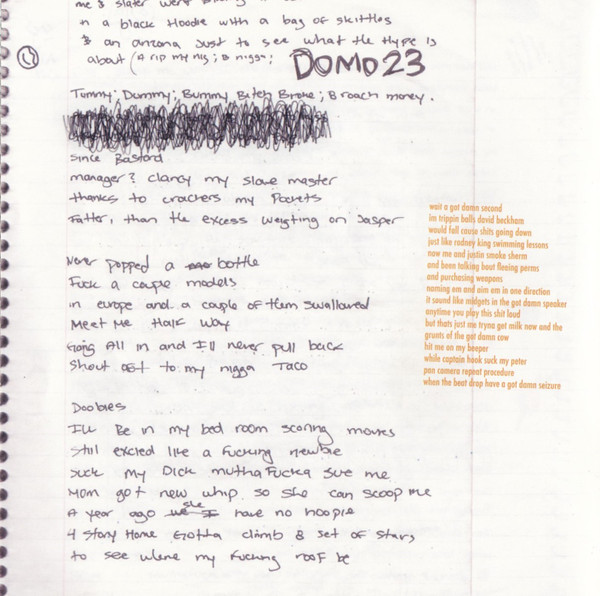 me & slater were
in a black Hoodie with a bag of skittles
& an arizona Just to see what the Hype is
about (A rip my nig; B nigga;
DOMO23
Tummy; Dummy; Bummy Bitch Broke; B roach money.
Since Bastard
manager? clancy my slave master
thanks to crackers my Pockets
Fatter, than the excess weigting on Jasper
Never popped a bottle
Fuck a couple models
in europe and a couple of them swallowed
Meet Me Half Way
Going All in and I'll never pull back
Shout out to my nigga Taco
Doobies
I'll Be in my bed room scoring movies
Still excied like a Fucking newbie
Suck my Dick mutha Fucka Sue me
Mom got new whip so she can scoop me
A year ago she have no hoopie
4 Story Home Gotta climb 8 set of stairs
to see where my Fucking roof be
wait a got damn second
im trippin balls david beckham
would fall cause shits going down
just like rodney king swimming lessons
now me and justin smoke sherm
and been talking bout fleeing perms
and purchasing weapons
naming em and aim em in one direction
it sound like midgets in the got damn speaker
anytime you play this shit loud
but thats just me tryna get milk now and the
grunts of the got damn cow
hit me on my beeper
while captain hook suck my peter
pan camera repeat procedure
when the beat drop have a got damn seizure